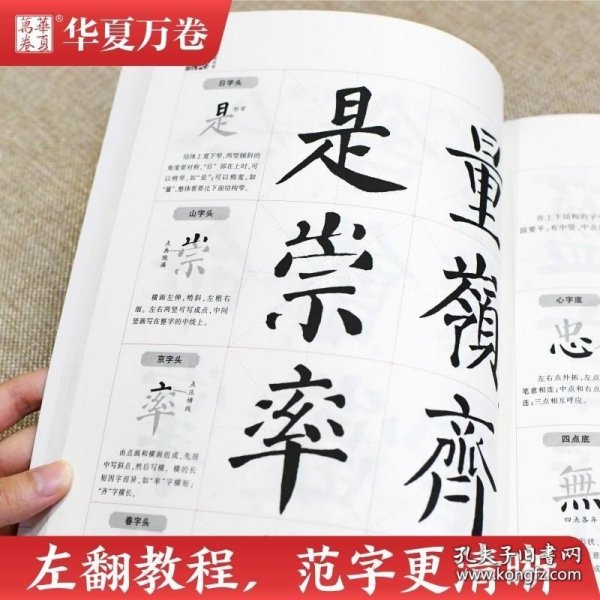 萬卷
華夏
®
华夏万卷
日字头
是
形窄
结体上宽下窄,两竖倾斜的
角度要对称,“日”部在上时,可
以稍窄,如“是”;可以稍宽,如
“量”,整体看要比下面结构窄。
山字头
崇
点画饱满
横画左伸,稍斜,左粗右
细;左右两竖可写成点,中间
竖画写在整字的中线上。
京字头
率
点压横线
由点画和横画组成,先居
中写斜点,然后写横。横的长
短因字而异,如“率”字横短;
“齐”字横长。
春字头
是
量
崇
嶺
率
齊
在上下结构的字中
段要平;有中竖,中点
心字底
忠
左右点外拓,左点
笔意相连;中点和右点
连;三点相互呼应。
四点底
無
四点各异
左翻教程，范字更清晰
孔夫子旧书网
www.kongfz.com